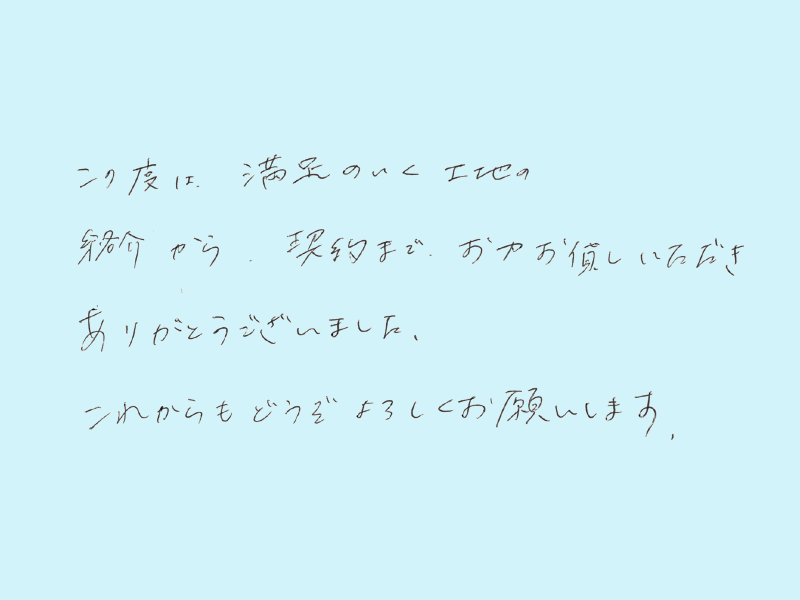 この度は、満足のいく土地の
紹介から、契約まで、お力お貸しいただき
ありがとうございました。
これからもどうぞよろしくお願いします。